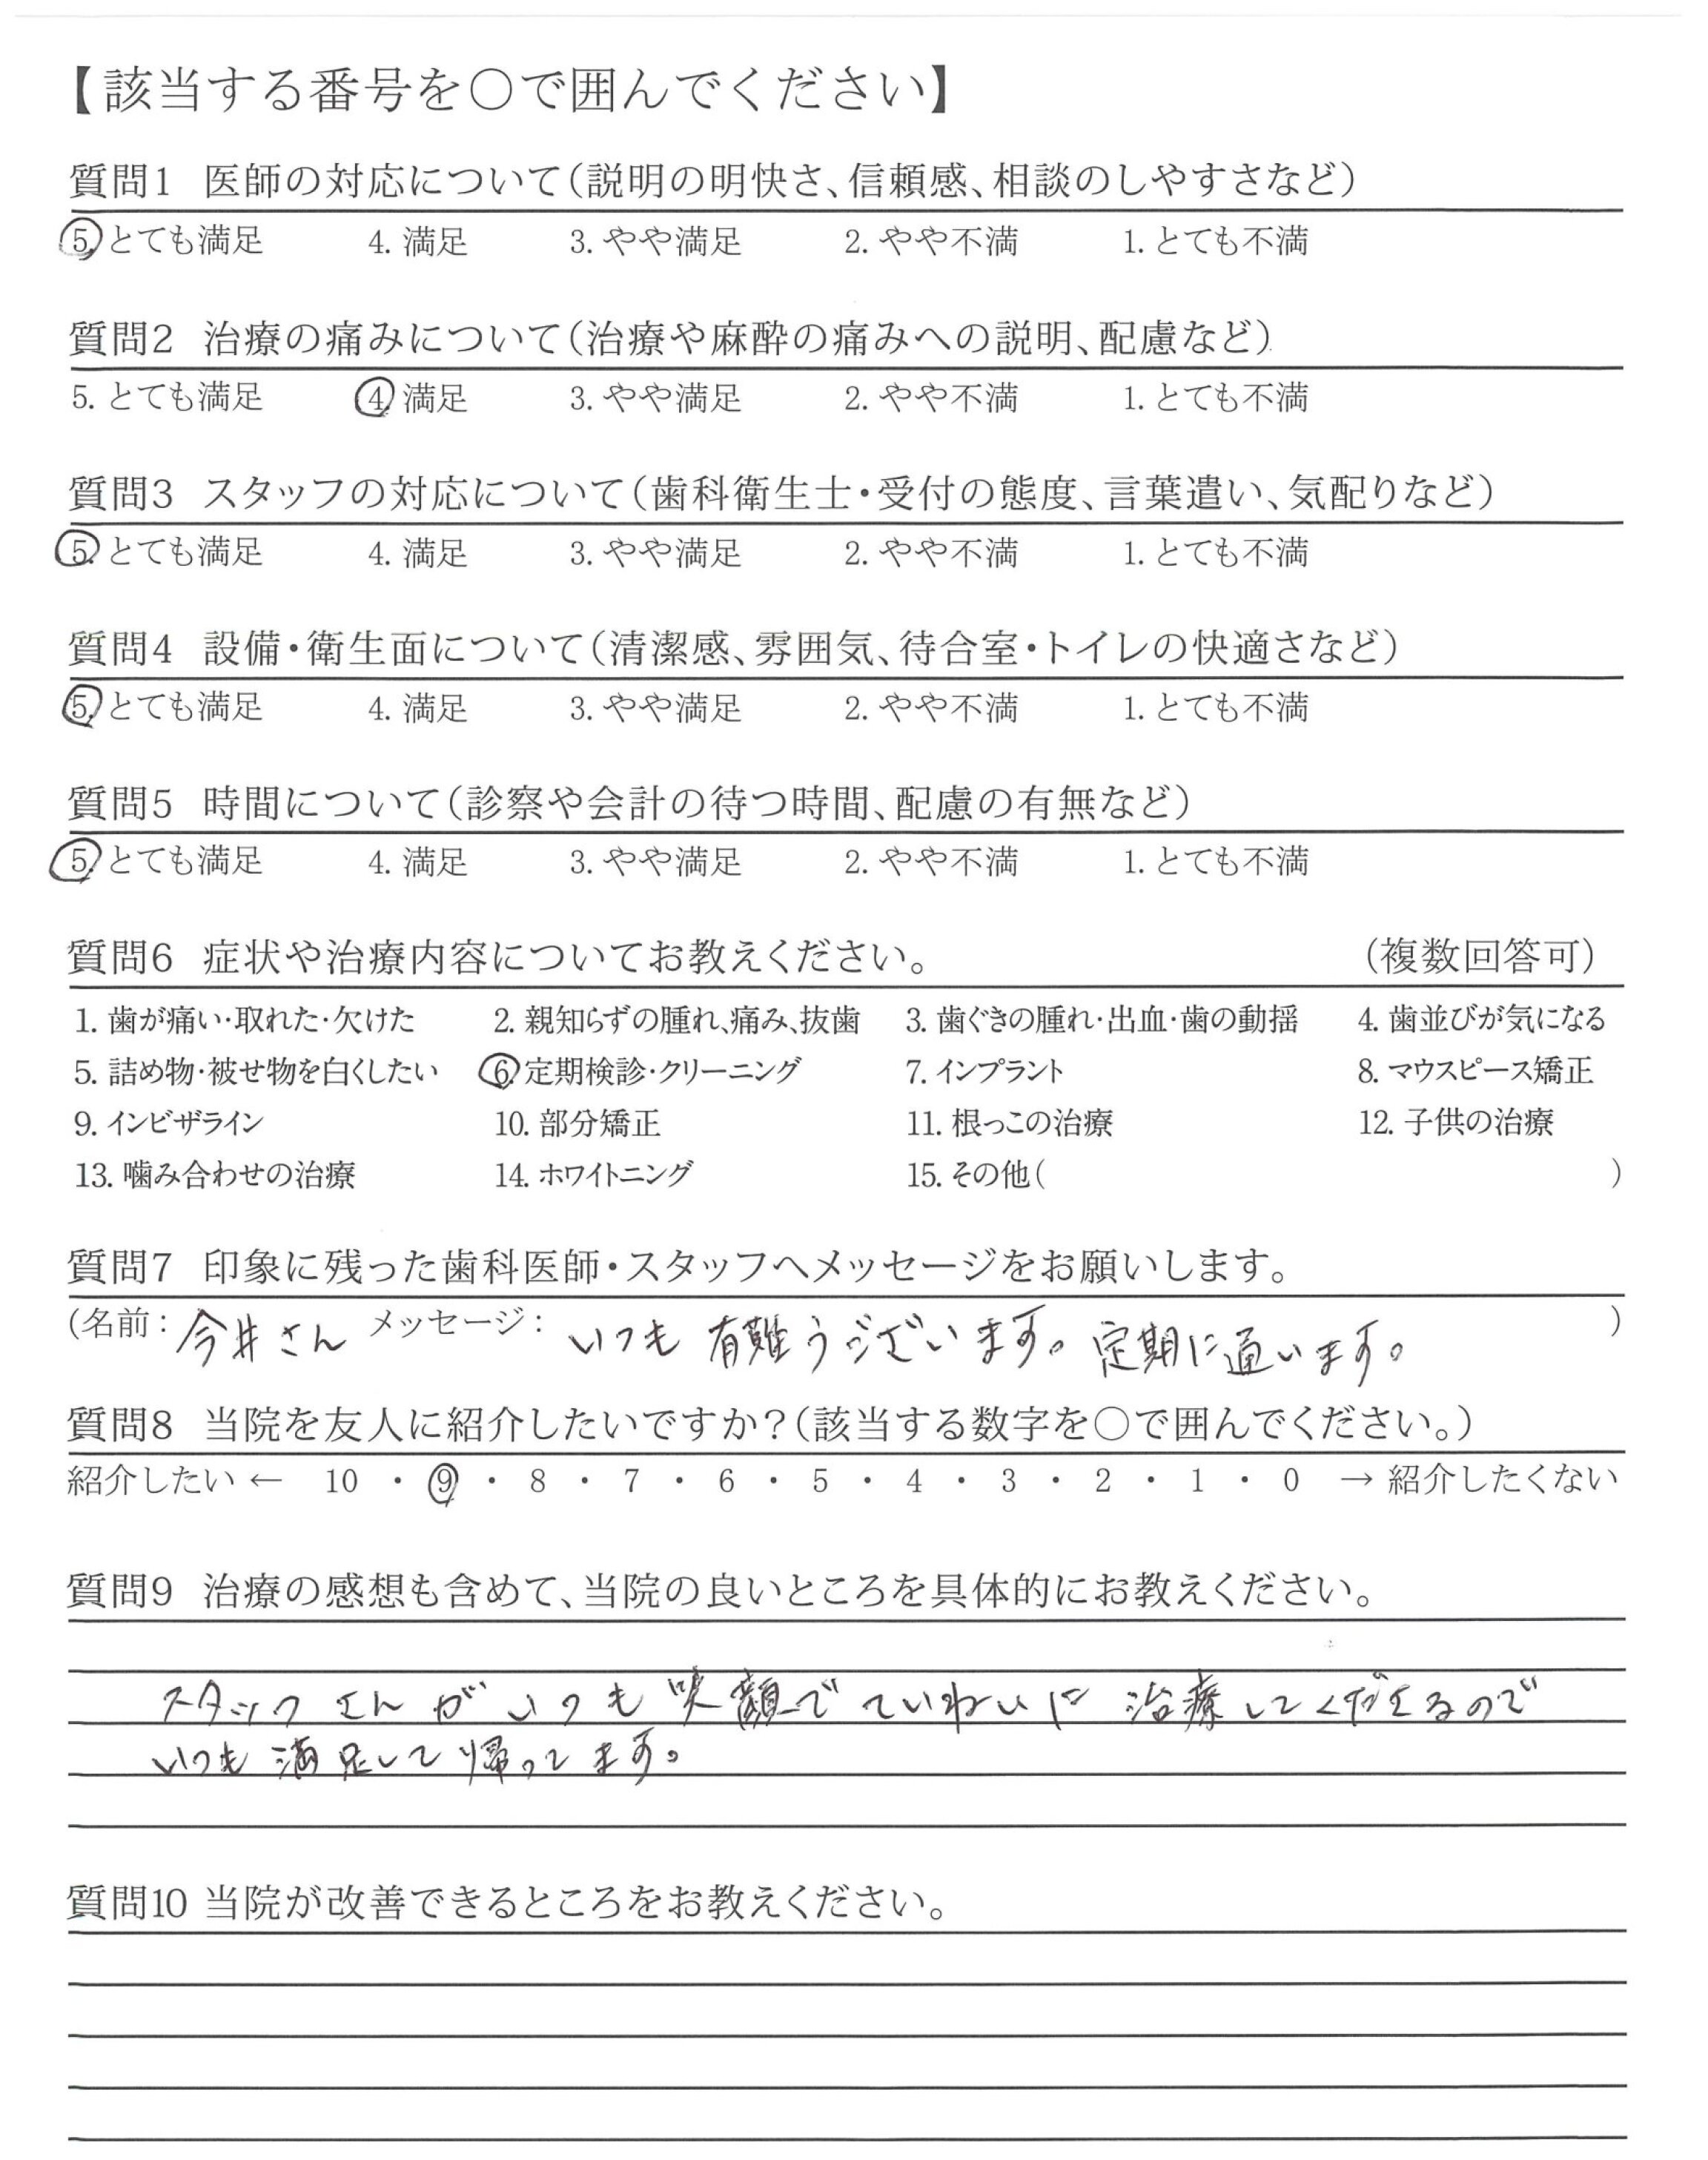 【該当する番号を○で囲んでください】
質問1 医師の対応について(説明の明快さ、信頼感、相談のしやすさなど)
5. とても満足 4. 満足 3. やや満足 2. やや不満 1. とても不満
質問2 治療の痛みについて(治療や麻酔の痛みへの説明、配慮など)
5. とても満足 4. 満足 3. やや満足 2. やや不満 1. とても不満
質問3 スタッフの対応について(歯科衛生士・受付の態度、言葉遣い、気配りなど)
5. とても満足 4. 満足 3. やや満足 2. やや不満 1. とても不満
質問4 設備・衛生面について(清潔感、雰囲気、待合室・トイレの快適さなど)
5. とても満足 4. 満足 3. やや満足 2. やや不満 1. とても不満
質問5 時間について(診察や会計の待つ時間、配慮の有無など)
5. とても満足 4. 満足 3. やや満足 2. やや不満 1. とても不満
質問6 症状や治療内容についてお教えください。 (複数回答可)
1. 歯が痛い・取れた・欠けた 2. 親知らずの腫れ、痛み、抜歯 3. 歯ぐきの腫れ・出血・歯の動揺 4. 歯並びが気になる
5. 詰め物・被せ物を白くしたい 6. 定期検診・クリーニング 7. インプラント 8. マウスピース矯正
9. インビザライン 10. 部分矯正 11. 根っこの治療 12. 子供の治療
13. 噛み合わせの治療 14. ホワイトニング 15. その他( )
質問7 印象に残った歯科医師・スタッフへメッセージをお願いします。
(名前: 今井さん メッセージ: いつも有難うございます。定期に通います。 )
質問8 当院を友人に紹介したいですか?(該当する数字を○で囲んでください。)
紹介したい ← 10 ・ 9 ・ 8 ・ 7 ・ 6 ・ 5 ・ 4 ・ 3 ・ 2 ・ 1 ・ 0 → 紹介したくない
質問9 治療の感想も含めて、当院の良いところを具体的にお教えください。
スタッフさんがいつも笑顔でていねいに治療してくださるので
いつも満足して帰ってます。
質問10 当院が改善できるところをお教えください。